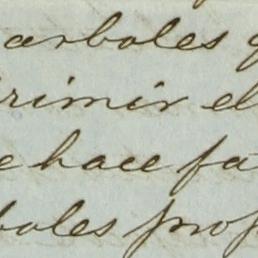 arboles
rimir el
hace fa
boles prop